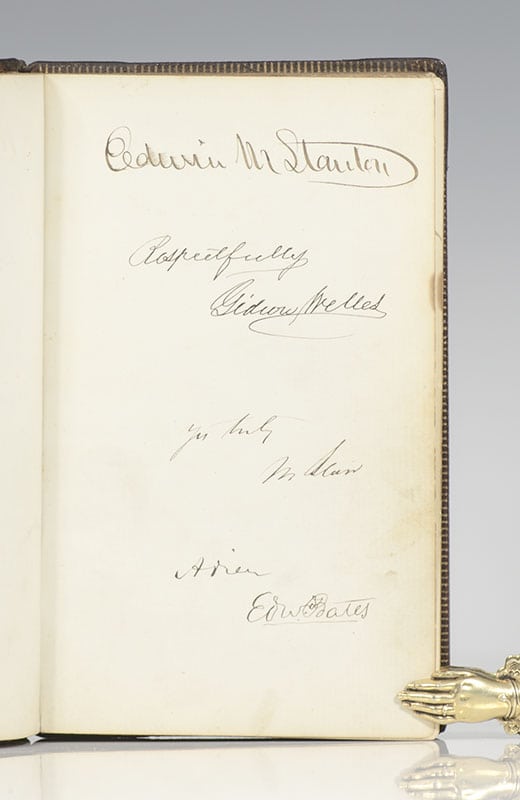 Edwin M Stanton
Respectfully
Gideon Welles
Yrs truly
M Blair
Adieu
Edw. Bates